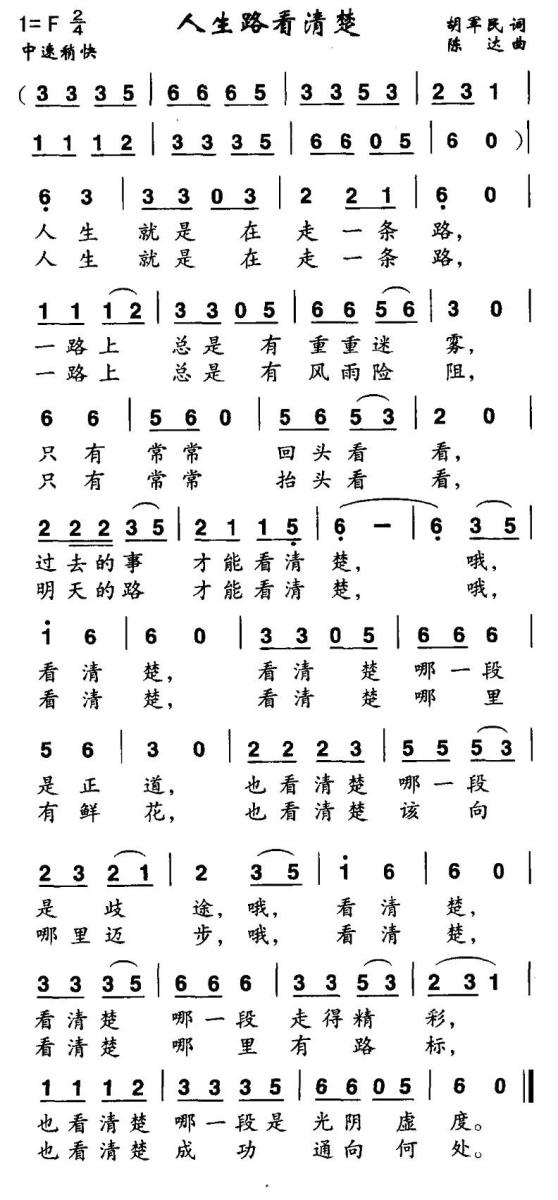 人生路看清楚
1=F 2/4
胡军民 词
中速稍快
陈达 曲
(3 3 3 5 | 6 6 6 5 | 3 3 5 3 | 2 3 1 |
1 1 1 2 | 3 3 3 5 | 6 6 0 5 | 6 0 )|
6̣ 3 | 3 3 0 3 | 2 2 1 | 6̣ 0 |
人生 就是 在 走一条 路,
人生 就是 在 走一条 路,
1 1 1 2 | 3 3 0 5 | 6 6 5 6 | 3 0 |
一路上 总是 有 重重迷 雾,
一路上 总是 有 风雨险 阻,
6 6 | 5 6 0 | 5 6 5 3 | 2 0 |
只有 常常 回头看 看,
只有 常常 抬头看 看,
2 2 2 3 5 | 2 1 1 5̣ | 6̣ - | 6̣ 3 5 |
过去的事 才能看清 楚, 哦,
明天的路 才能看清 楚, 哦,
i 6 | 6 0 | 3 3 0 5 | 6 6 6 |
看清 楚, 看清 楚 哪一段
看清 楚, 看清 楚 哪里
5 6 | 3 0 | 2 2 2 3 | 5 5 5 3 |
是正 道, 也看清楚 哪一段
有鲜 花, 也看清楚 该向
2 3 2 1 | 2 3 5 | i 6 | 6 0 |
是 歧 途,哦, 看清 楚,
哪里迈 步,哦, 看清 楚,
3 3 3 5 | 6 6 6 | 3 3 5 3 | 2 3 1 |
看清楚 哪一段 走得精 彩,
看清楚 哪里 有路 标,
1 1 1 2 | 3 3 3 5 | 6 6 0 5 | 6 0 ‖
也看清楚 哪一段是 光阴 虚 度。
也看清楚 成功 通向 何 处。